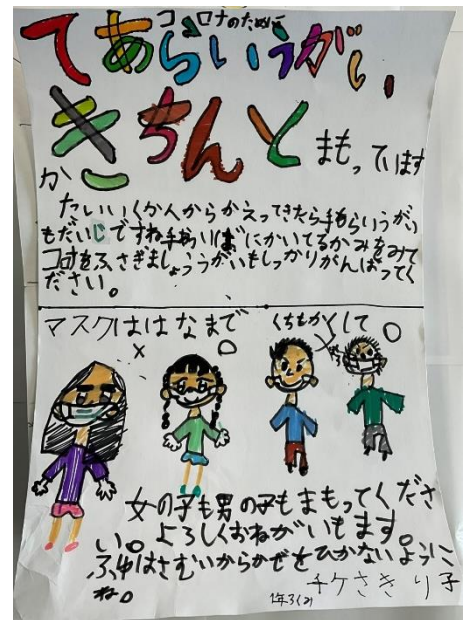 コロナのために
てあらいうがい
きちんとまもっています
か
たいいくかんからかえってきたら手あらいうがい
もだいじですね手あらいばにかいてるかみをみて
コロナをふさぎましょううがいもしっかりがんばってく
ださい。
マスクははなまで
くちもかくして
女の子も男の子もまもってくださ
い。よろしくおねがいもます。
ふゆはさむいからかぜをひかないように
ね。
1年3くみ
さきり子